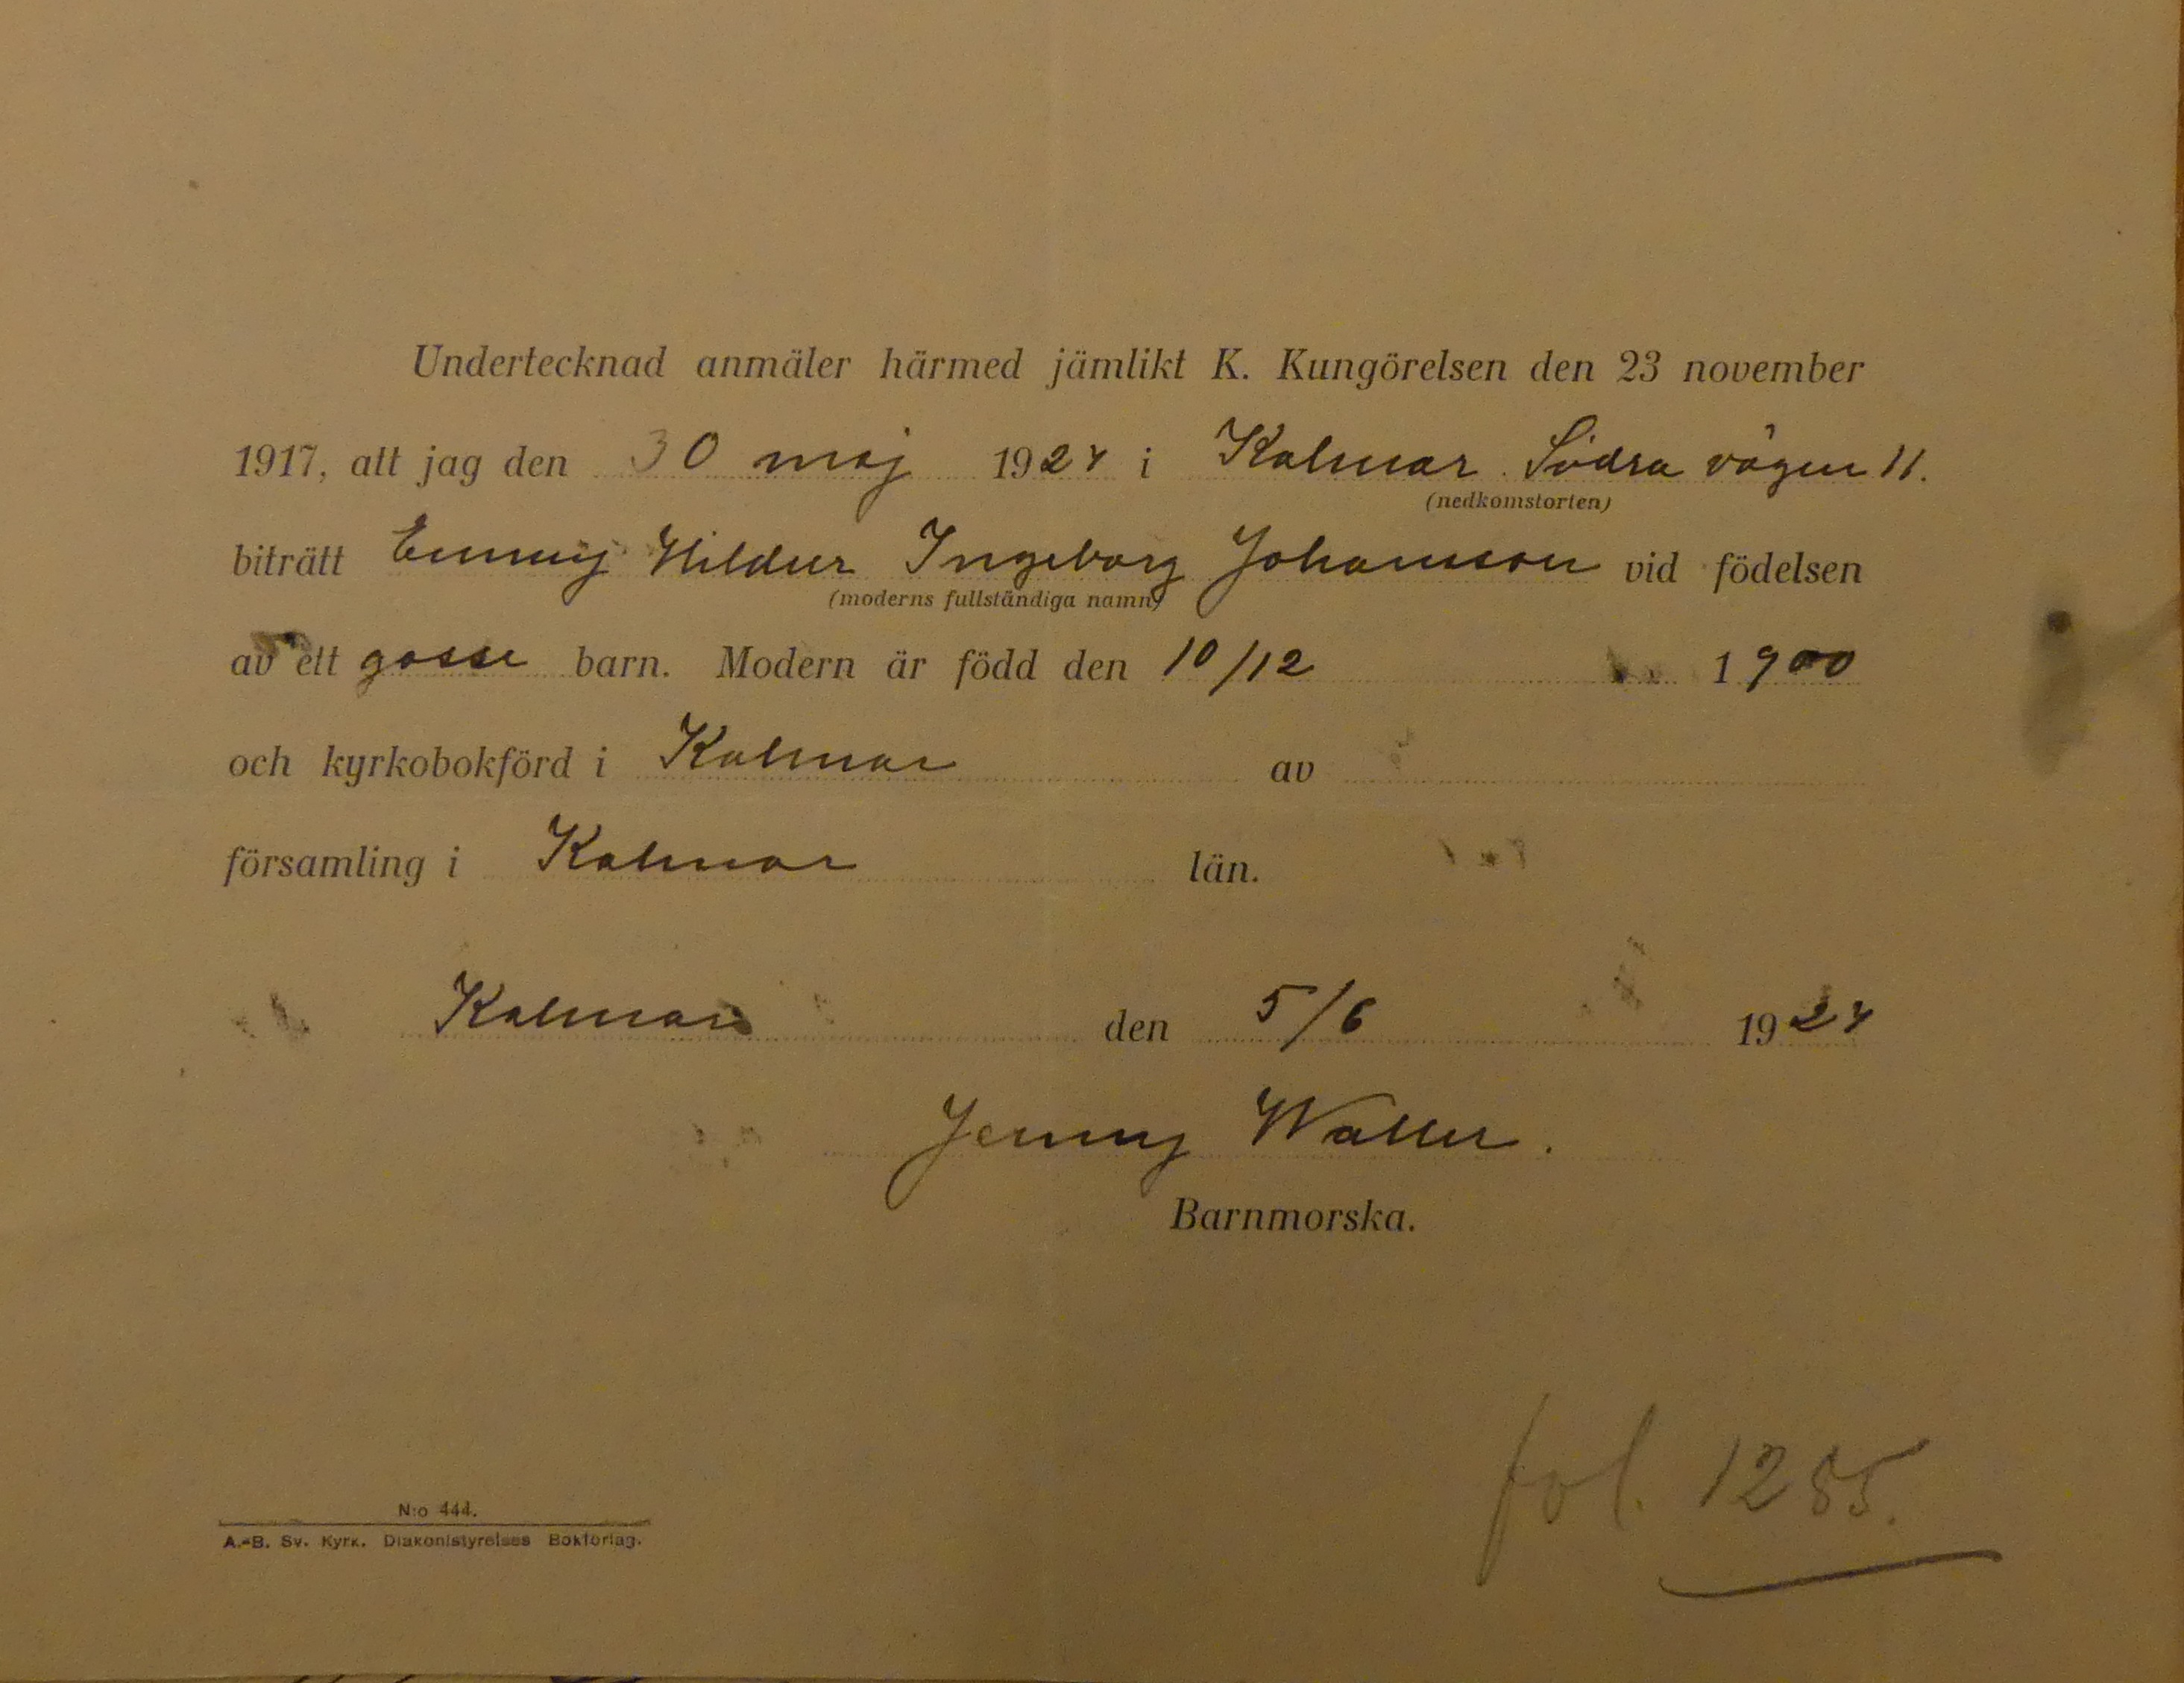 Undertecknad anmäler härmed jämlikt K. Kungörelsen den 23 november
1917, att jag den 30 maj 1924 i Kalmar Södra vägen 11.
(nedkomstorten)
biträtt Emmy Hildur Ingeborg Johansson vid födelsen
(moderns fullständiga namn)
av ett gosse barn. Modern är född den 10/12 1900
och kyrkobokförd i Kalmar av
församling i Kalmar län.
Kalmar den 5/6 1924
Jenny Waller.
Barnmorska.
fol. 1285.
N:o 444.
A.-B. Sv. Kyrk. Diakonistyrelses Bokförlag.